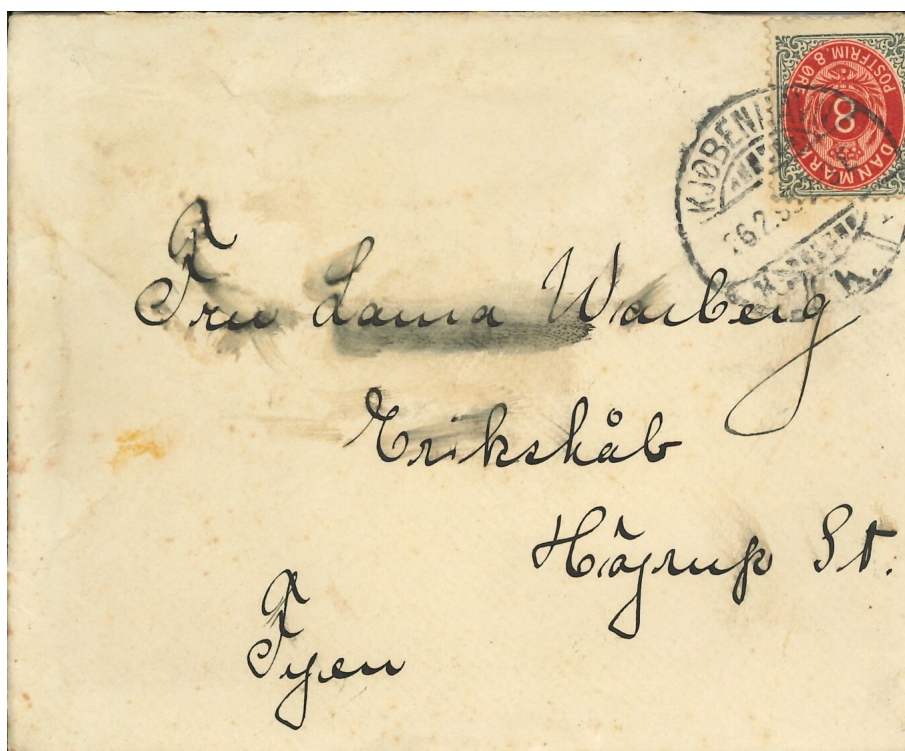 POSTFRIM. 8 ØRE
8
DANMARK
KJØBENH
26.2.9
K.
Fru Laura Warberg
Erikshåb
Höjrup St.
Fyen